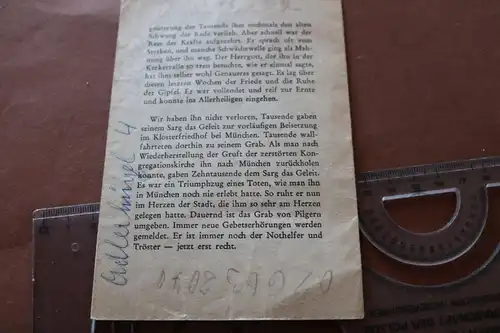 geisterung der Tausende ihm nochmals den alten
Schwung der Rede verlieh. Aber schnell war der
Rest der Kräfte aufgezehrt. Er sprach oft vom
Sterben, und manche Schwächewelle ging als Mah-
nung über ihn weg. Der Herrgott, der ihn in der
Kerkerzelle so treu besuchte, wie er einmal sagte,
hat ihm selber wohl Genaueres gesagt. Es lag über
diesen letzten Wochen der Friede und die Ruhe
der Gipfel. Er war vollendet und reif zur Ernte
und konnte ins Allerheiligen eingehen.
Wir haben ihn nicht verloren. Tausende gaben
seinem Sarg das Geleit zur vorläufigen Beisetzung
im Klosterfriedhof bei München. Tausende wall-
fahrteten dorthin zu seinem Grab. Als man nach
Wiederherstellung der Gruft der zerstörten Kon-
gregationskirche ihn nach München zurückholen
konnte, gaben Zehntausende dem Sarg das Geleit.
Es war ein Triumphzug eines Toten, wie man ihn
in München noch nie erlebt hatte. So ruht er nun
im Herzen der Stadt, die ihm so sehr am Herzen
gelegen hatte. Dauernd ist das Grab von Pilgern
umgeben. Immer neue Gebetserhörungen werden
gemeldet. Er ist immer noch der Nothelfer und
Tröster — jetzt erst recht.